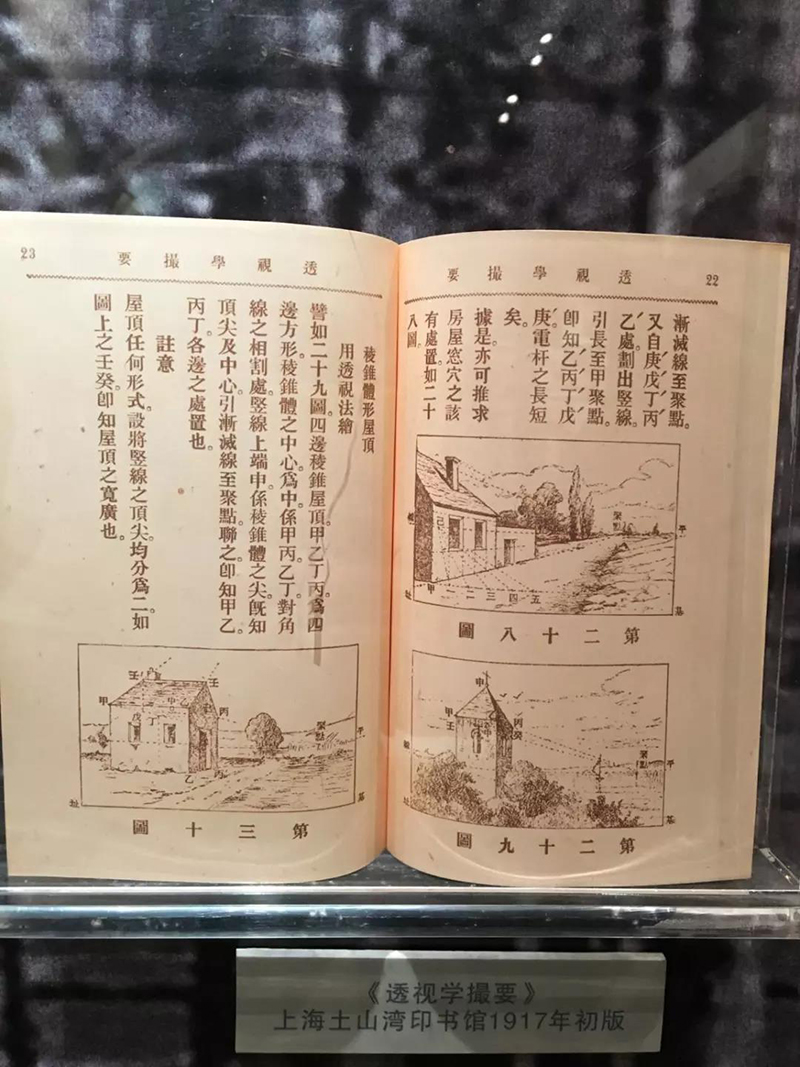 22
透視學撮要
漸減線至聚點。
又自庚′戊′丁′丙′
乙′處劃出豎線。
引長至甲聚點。
卽知乙丙丁戊
庚′電杆之長短
矣。
據是。亦可推求
房屋窓穴之該
有處置。如二十
八圖。
聚點
平
己
甲
一二三四五
基
址
第二十八圖
申
甲
丙
壬
癸
中
聚點
平
基
址
第二十九圖
23
透視學撮要
稜錐體形屋頂
用透視法繪
譬如二十九圖。四邊稜錐屋頂。甲乙丁丙爲四
邊方形。稜錐體之中心爲中。係甲丙乙丁對角
線之相割處。豎線上端申。係稜錐體之尖。旣知
頂尖及中心。引漸減線至聚點。聯之。卽知甲乙
丙丁。各邊之處置也。
註意
屋頂任何形式。設將豎線之頂尖。均分爲二。如
圖上之壬癸。卽知屋頂之寬廣也。
壬
壬
甲
丙
丁
乙
聚點
平
基
址
第三十圖
《透视学撮要》
上海土山湾印书馆1917年初版